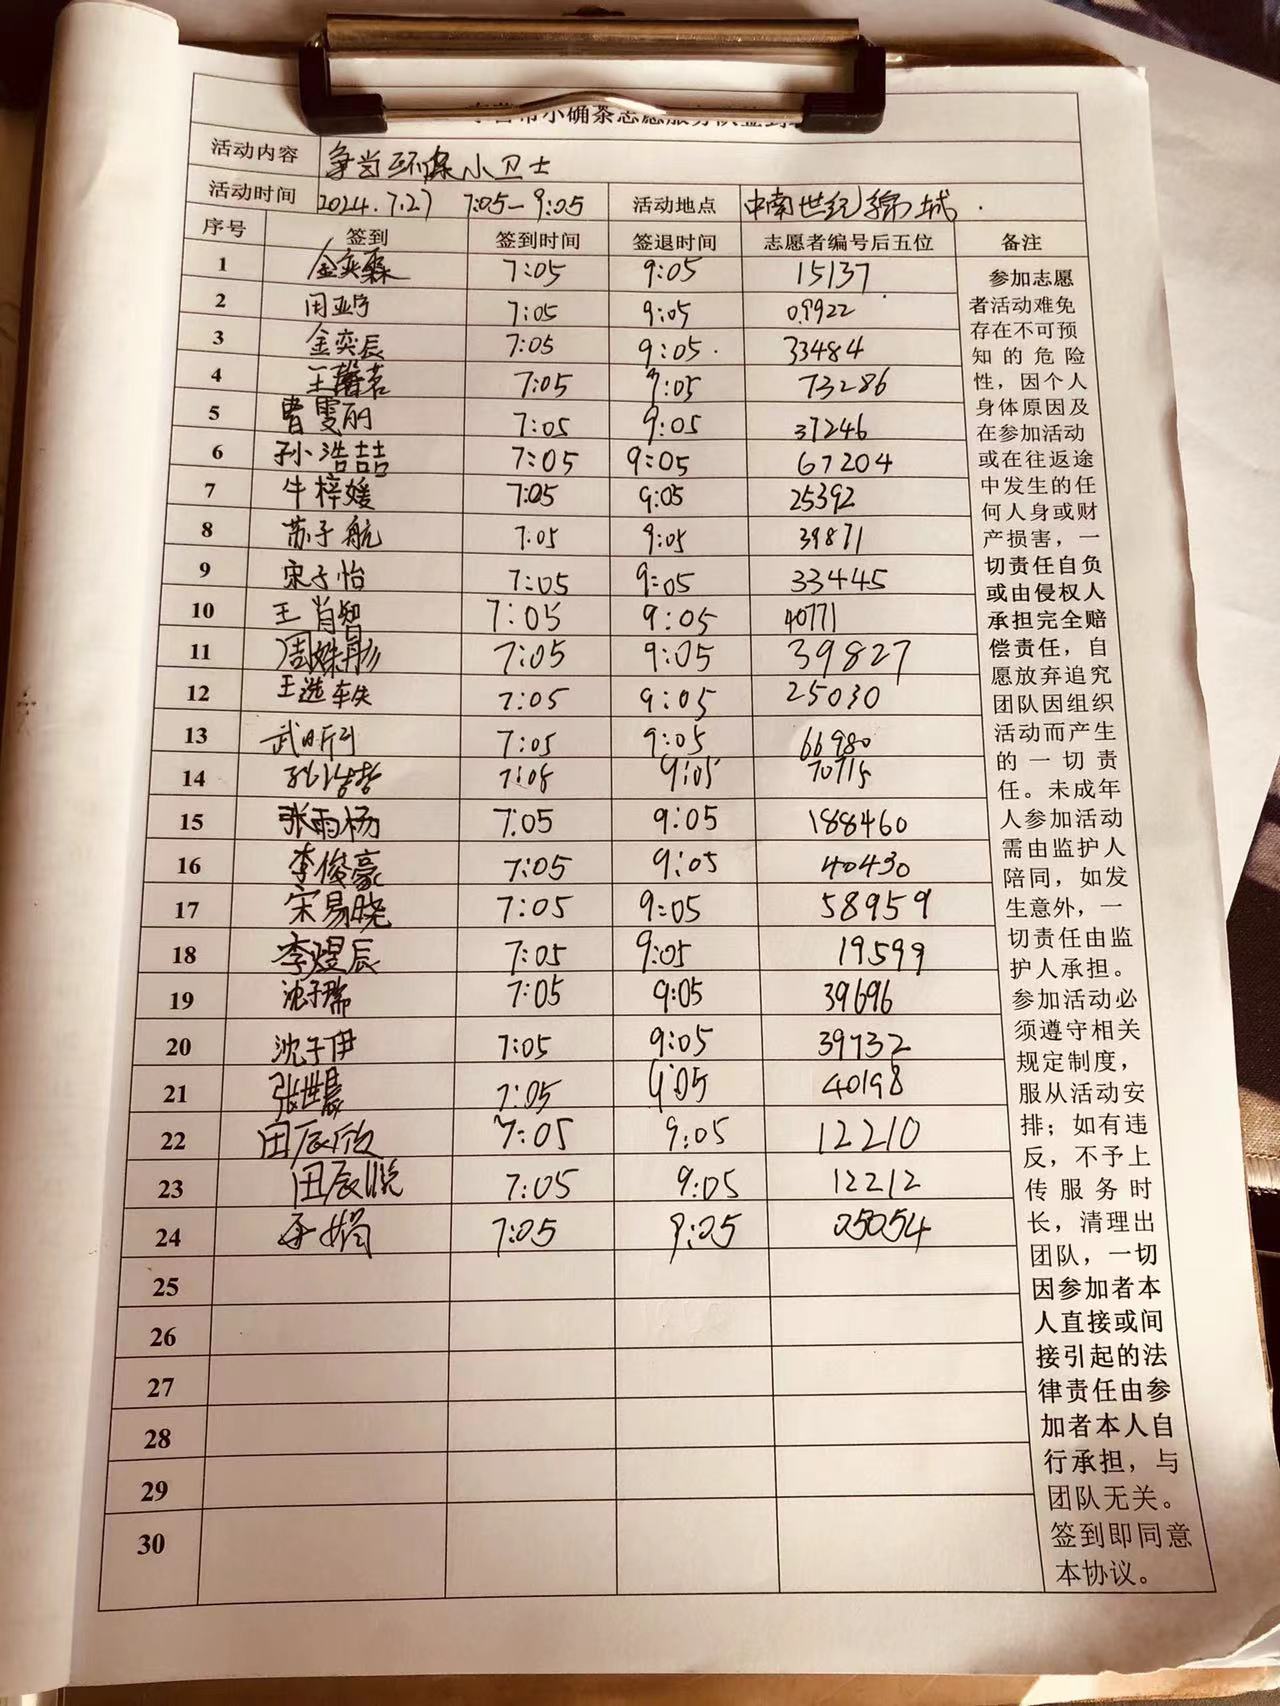 小确茶志愿服务队签到
活动内容 争当环保小卫士
活动时间 2024.7.27 7:05-9:05 活动地点 中南世纪锦城.
序号 签到 签到时间 签退时间 志愿者编号后五位 备注
1 金奕霖 7:05 9:05 15137
2 7:05 9:05 09922
3 金奕辰 7:05 9:05 33484
4 王馨茗 7:05 9:05 73286
5 曹雯丽 7:05 9:05 37246
6 孙浩喆 7:05 9:05 67204
7 牛梓媛 7:05 9:05 25392
8 苏子航 7:05 9:05 39871
9 宋子怡 7:05 9:05 33445
10 王肖智 7:05 9:05 40771
11 周姝彤 7:05 9:05 39827
12 王选轶 7:05 9:05 25030
13 7:05 9:05 66980
14 7:05 9:05 70715
15 张雨杨 7:05 9:05 188460
16 李俊豪 7:05 9:05 40430
17 宋易晓 7:05 9:05 58959
18 李煜辰 7:05 9:05 19599
19 沈子瑞 7:05 9:05 39696
20 沈子伊 7:05 9:05 39732
21 张世晨 7:05 9:05 40198
22 田辰欣 7:05 9:05 12210
23 田辰悦 7:05 9:05 12212
24 7:05 9:05 05054
25
26
27
28
29
30
参加志愿
者活动难免
存在不可预
知的危险
性，因个人
身体原因及
在参加活动
或在往返途
中发生的任
何人身或财
产损害，一
切责任自负
或由侵权人
承担完全赔
偿责任，自
愿放弃追究
团队因组织
活动而产生
的一切责
任。未成年
人参加活动
需由监护人
陪同，如发
生意外，一
切责任由监
护人承担。
参加活动必
须遵守相关
规定制度，
服从活动安
排；如有违
反，不予上
传服务时
长，清理出
团队，一切
因参加者本
人直接或间
接引起的法
律责任由参
加者本人自
行承担，与
团队无关。
签到即同意
本协议。